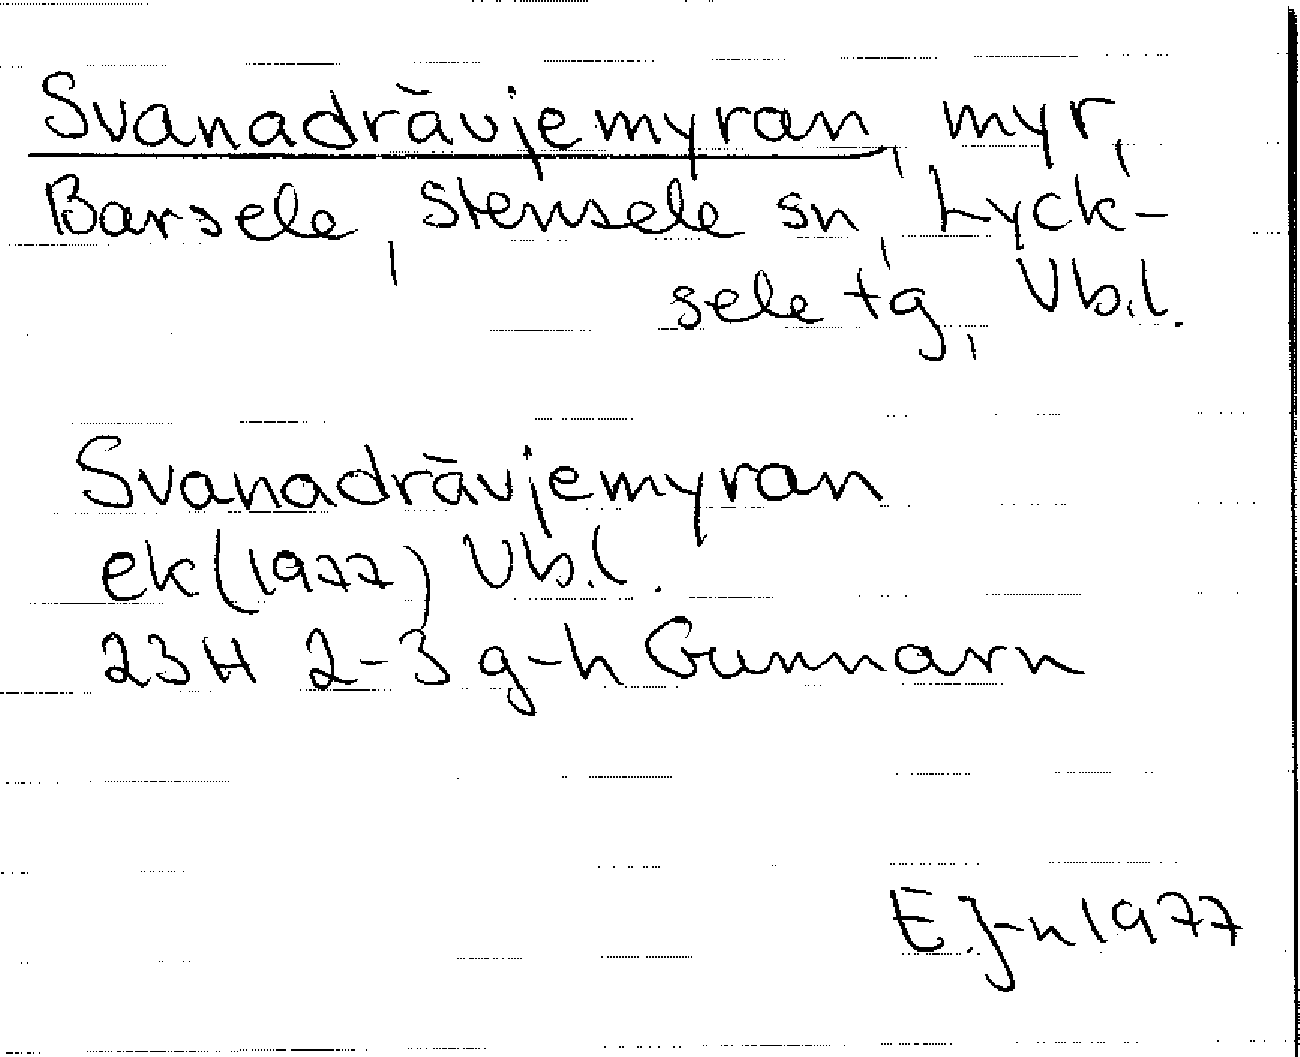 Svanadrävjemyran, myr,
Barsele, Stensele sn, Lyck-
sele tg, Vb.l.
Svanadrävjemyran
ek (1977) Vb.l.
23H 2-3 g-h Gunnarn
E J-n 1977